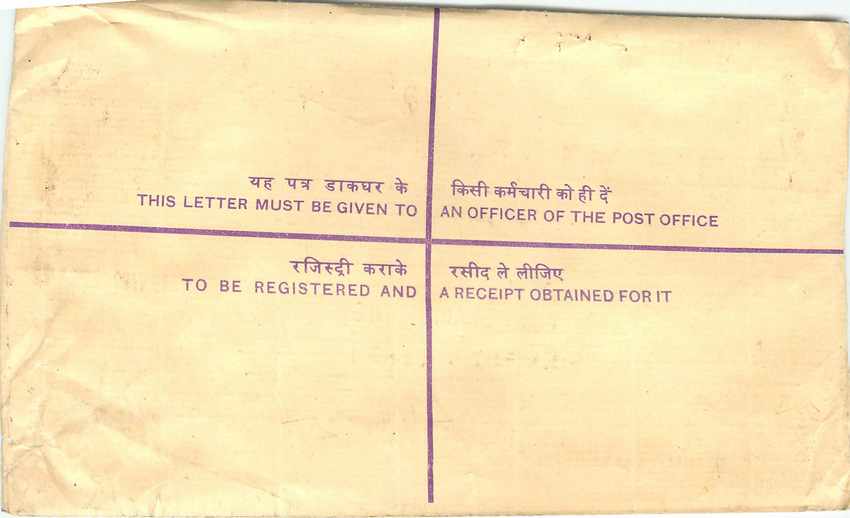 यह पत्र डाकघर के किसी कर्मचारी को ही दें
THIS LETTER MUST BE GIVEN TO AN OFFICER OF THE POST OFFICE
रजिस्ट्री कराके रसीद ले लीजिए
TO BE REGISTERED AND A RECEIPT OBTAINED FOR IT